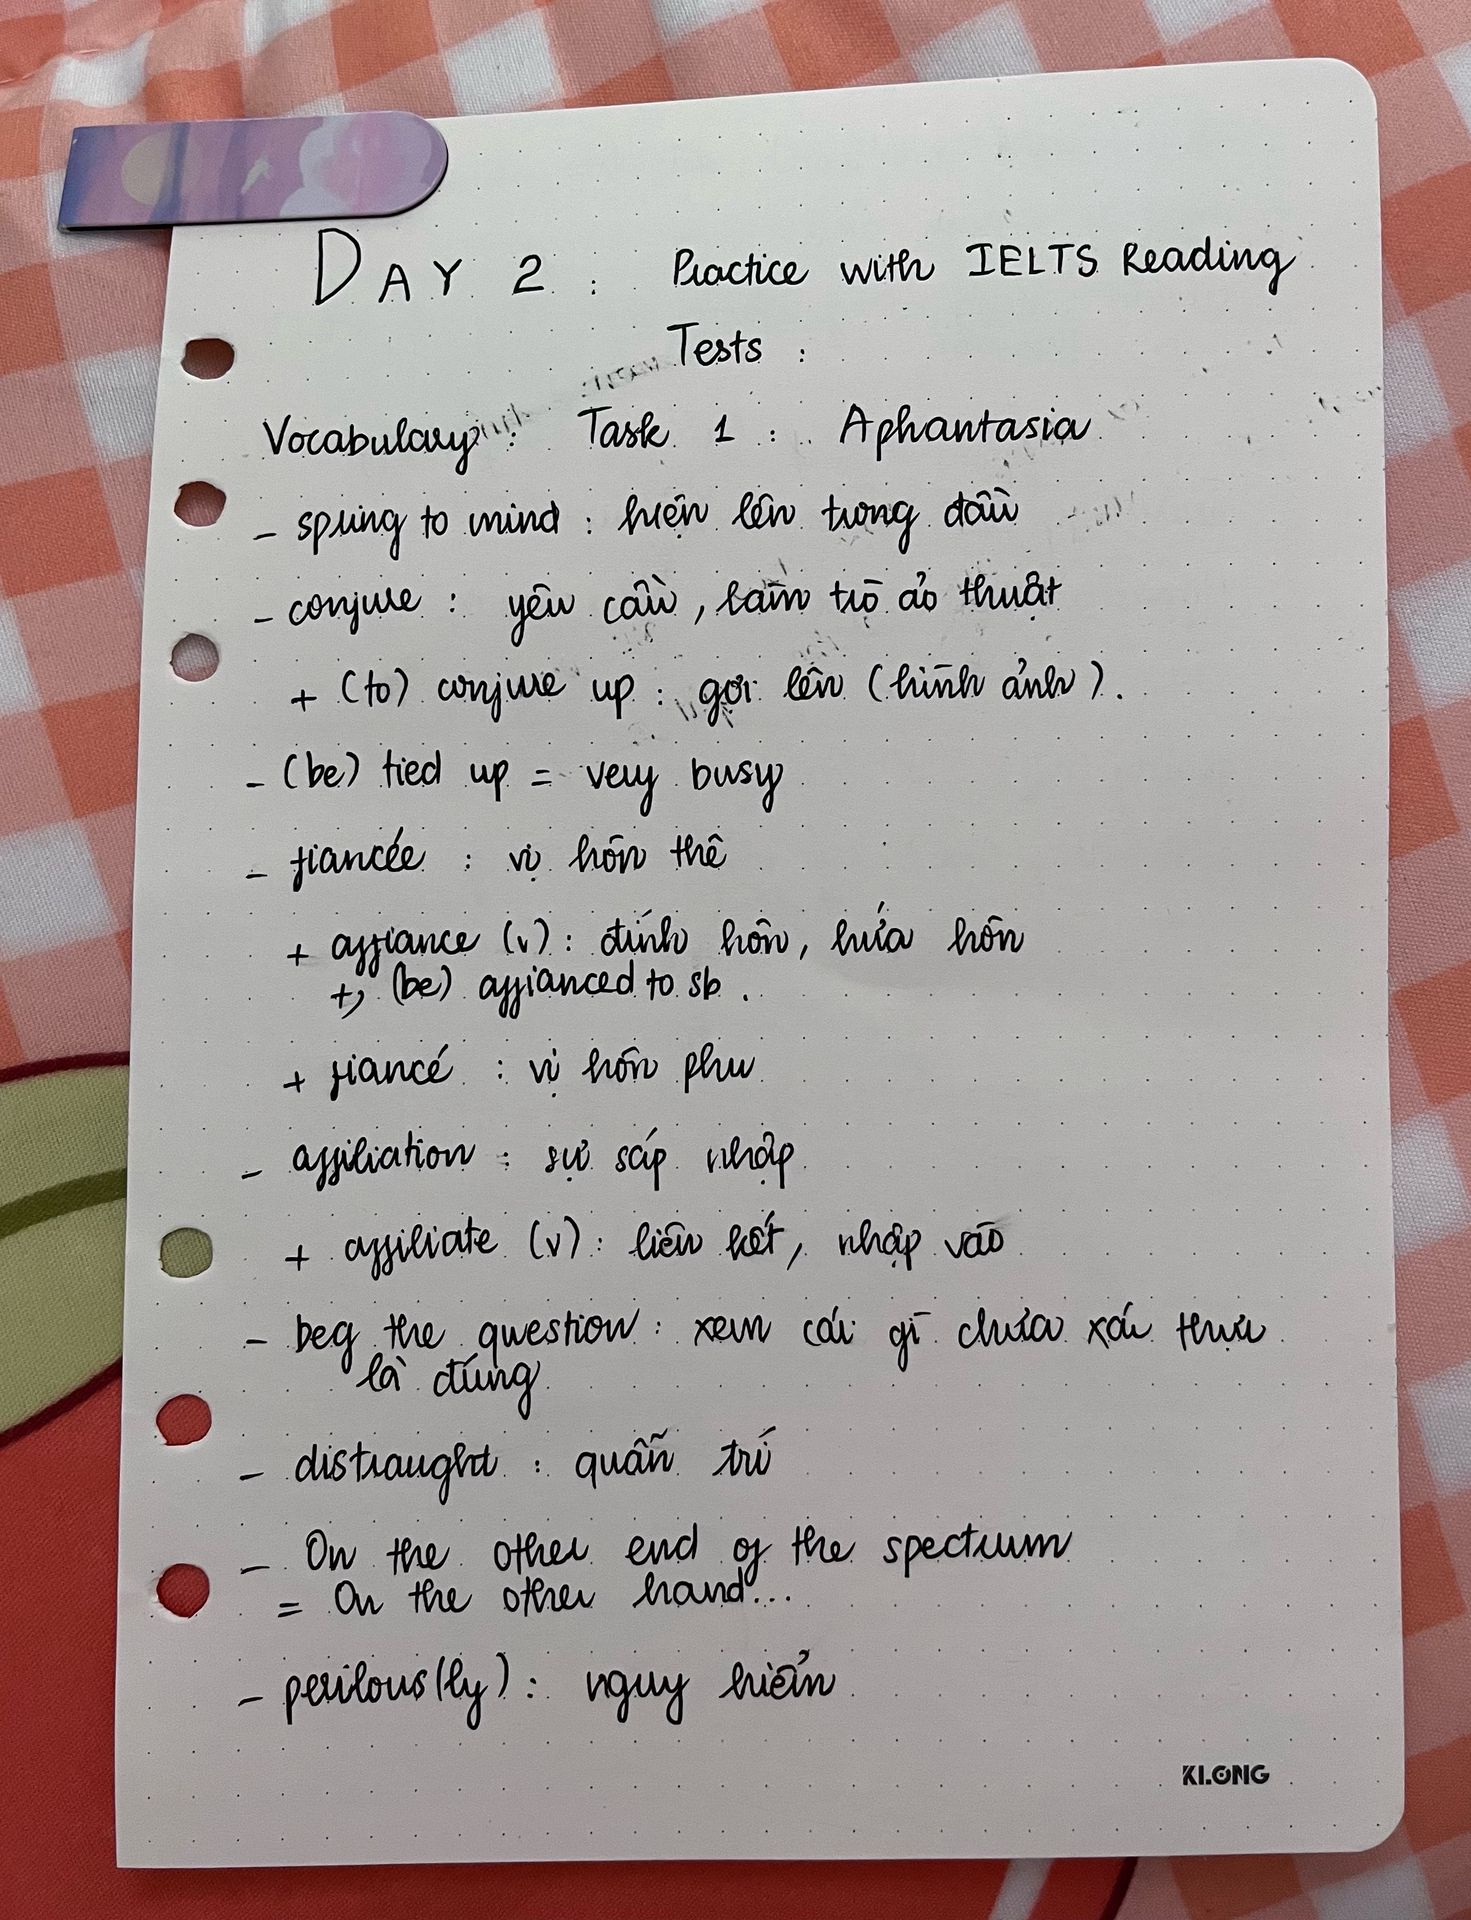 DAY 2 : Practice with IELTS Reading
Tests :
Vocabulary : Task 1 : Aphantasia
- spring to mind : hiện lên trong đầu
- conjure : yêu cầu, làm trò ảo thuật
+ (to) conjure up : gợi lên (hình ảnh).
- (be) tied up = very busy
- fiancée : vị hôn thê
+ affiance (v) : đính hôn, hứa hôn
+, (be) affianced to sb.
+ fiancé : vị hôn phu
- affiliation : sự sáp nhập
+ affiliate (v) : liên kết, nhập vào
- beg the question : xem cái gì chưa xác thực
là đúng
- distraught : quẫn trí
- On the other end of the spectrum
= On the other hand...
- perilous(ly) : nguy hiểm
KLONG